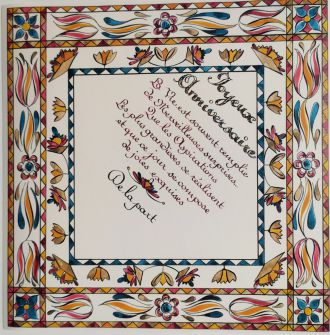 Joyeux
Anniversaire
La Vie est souvent remplie
de Merveilleuses surprises
Que les Aspirations
les plus grandioses se réalisent
et que ce jour se compose
de joies exquises
De la part